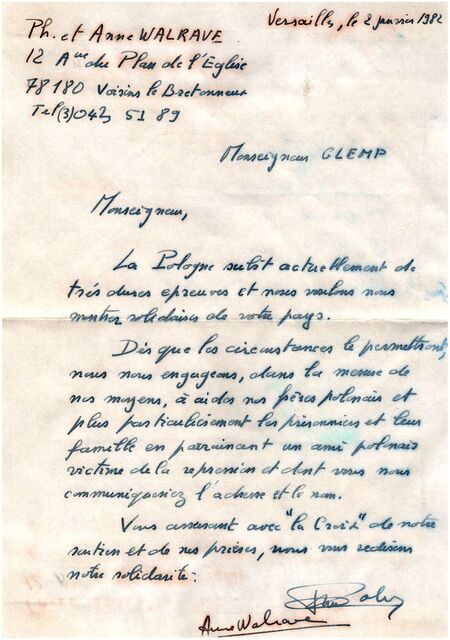 Versailles, le 2 janvier 1982
Ph. et Anne WALRAVE
12 Aue du Plan de l'Eglise
78180 Voisins le Bretonneux
Tel (3) 043 51 89
Monseigneur GLEMP
Monseigneur,
La Pologne subit actuellement de
très dures epreuves et nous voulons nous
montrer solidaires de votre pays.
Dès que les circonstances le permettront,
nous nous engageons, dans la mesure de
nos moyens, à aider nos frères polonais et
plus particulièrement les prisonniers et leur
famille en parrainant un ami polonais
victime de la repression et dont vous nous
communiqueriez l'adresse et le nom.
Vous assurant avec "la Croix" de notre
soutien et de nos prières, nous vous redisons
notre solidarité.
Anne Walrave